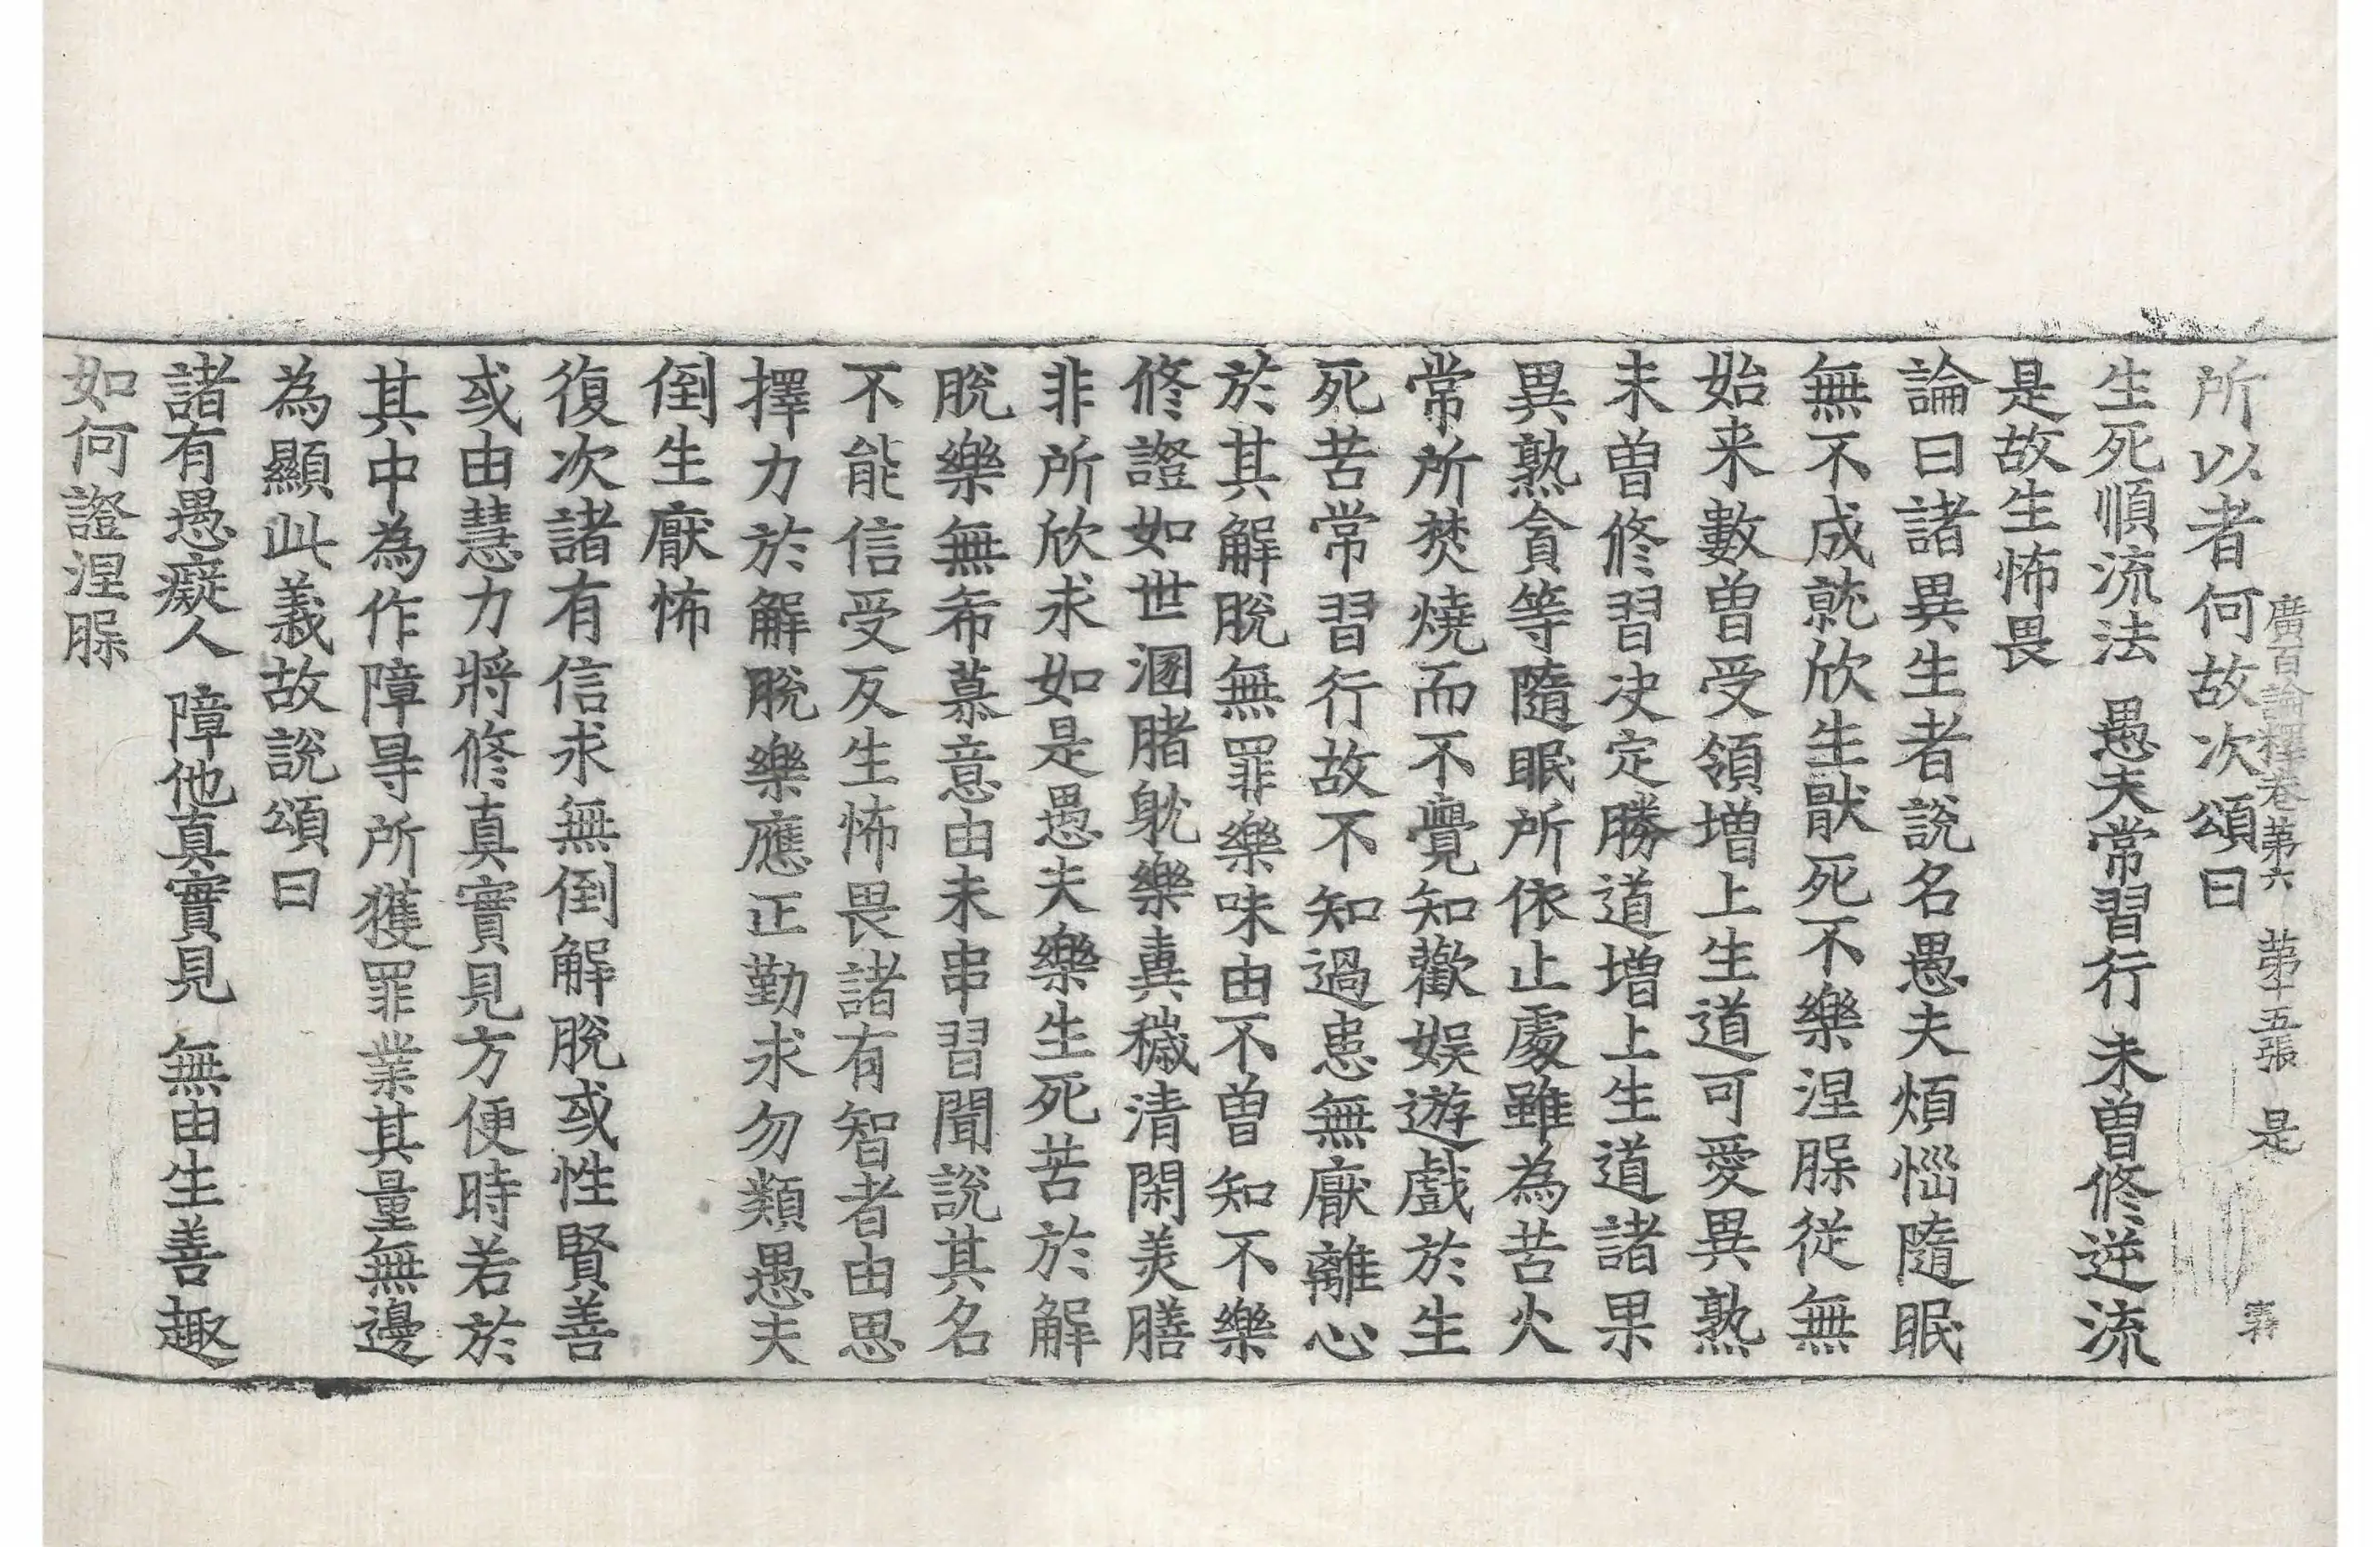 廣百論釋卷第六 第十五張 是
所以者何故次頌曰
生死順流法 愚夫常習行 未曾修逆流
是故生怖畏
論曰諸異生者說名愚夫煩惱隨眠
無不成就欣生猒死不樂涅槃從無
始来數曾受領增上生道可愛異熟
未曾修習决定勝道增上生道諸果
異熟貪等隨眠所依止處雖為苦火
常所焚燒而不覺知歡娛遊戲於生
死苦常習行故不知過患無厭離心
於其解脫無罪樂味由不曾知不樂
修證如世溷腊躭樂糞穢清閑美膳
非所欣求如是愚夫樂生死苦於解
脫樂無希慕意由未串習聞說其名
不能信受反生怖畏諸有智者由思
擇力於解脫樂應正勤求勿類愚夫
倒生厭怖
復次諸有信求無倒解脫或性賢善
或由慧力將修真實見方便時若於
其中為作障㝵所獲罪業其量無邊
為顯此義故說頌曰
諸有愚癡人 障他真實見 無由生善趣
如何證涅槃